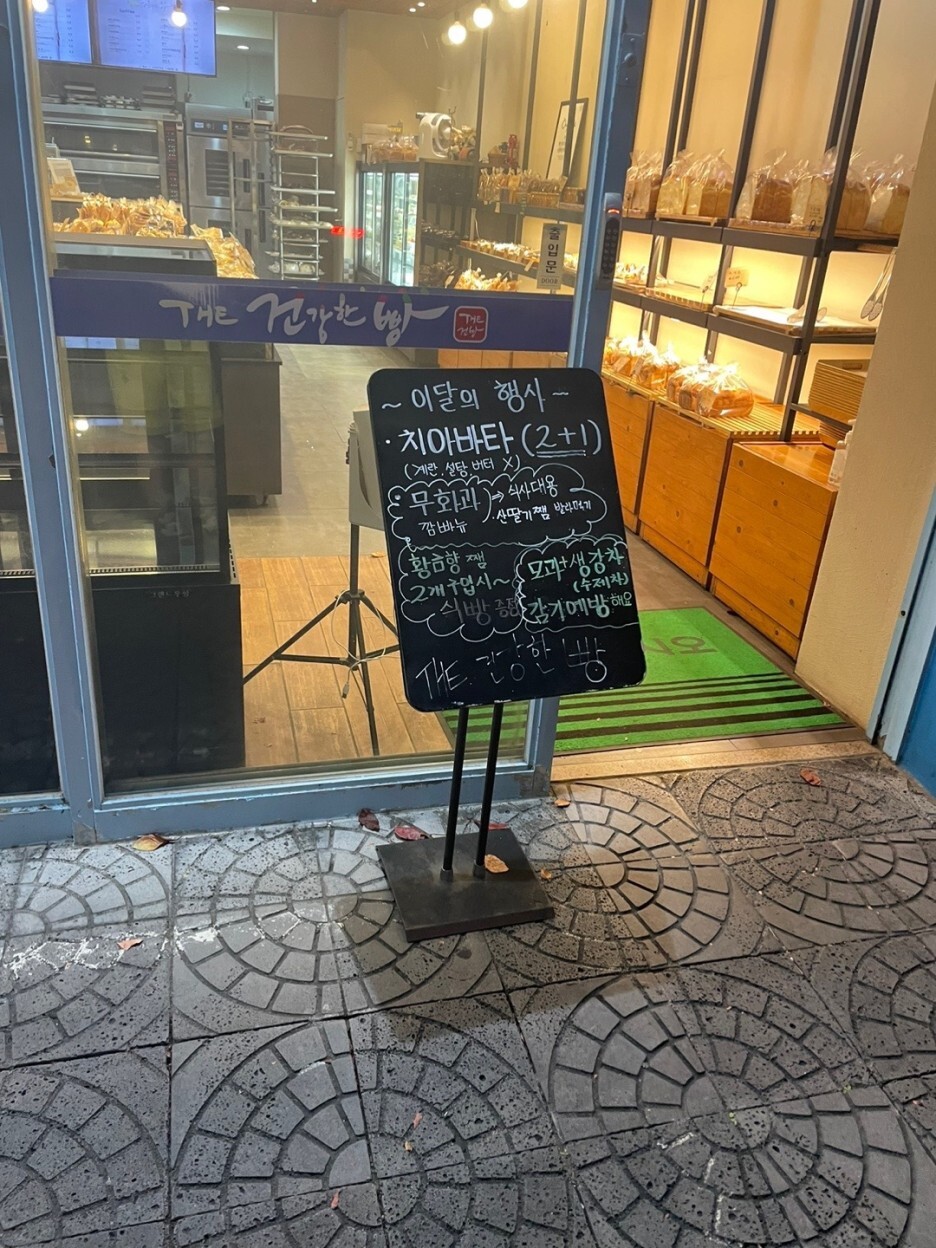 재E 건강한 빵
출입문
DOOR
~ 이달의 행사 ~
· 치아바타 (2+1)
(계란, 설탕, 버터 X)
무화과 깜빠뉴
→ 식사대용
· 산딸기쨈 발라먹기
황금향 쨈
2개구입시~
식빵 증정
모과+생강차
(수제차)
감기예방해요
건강한 빵